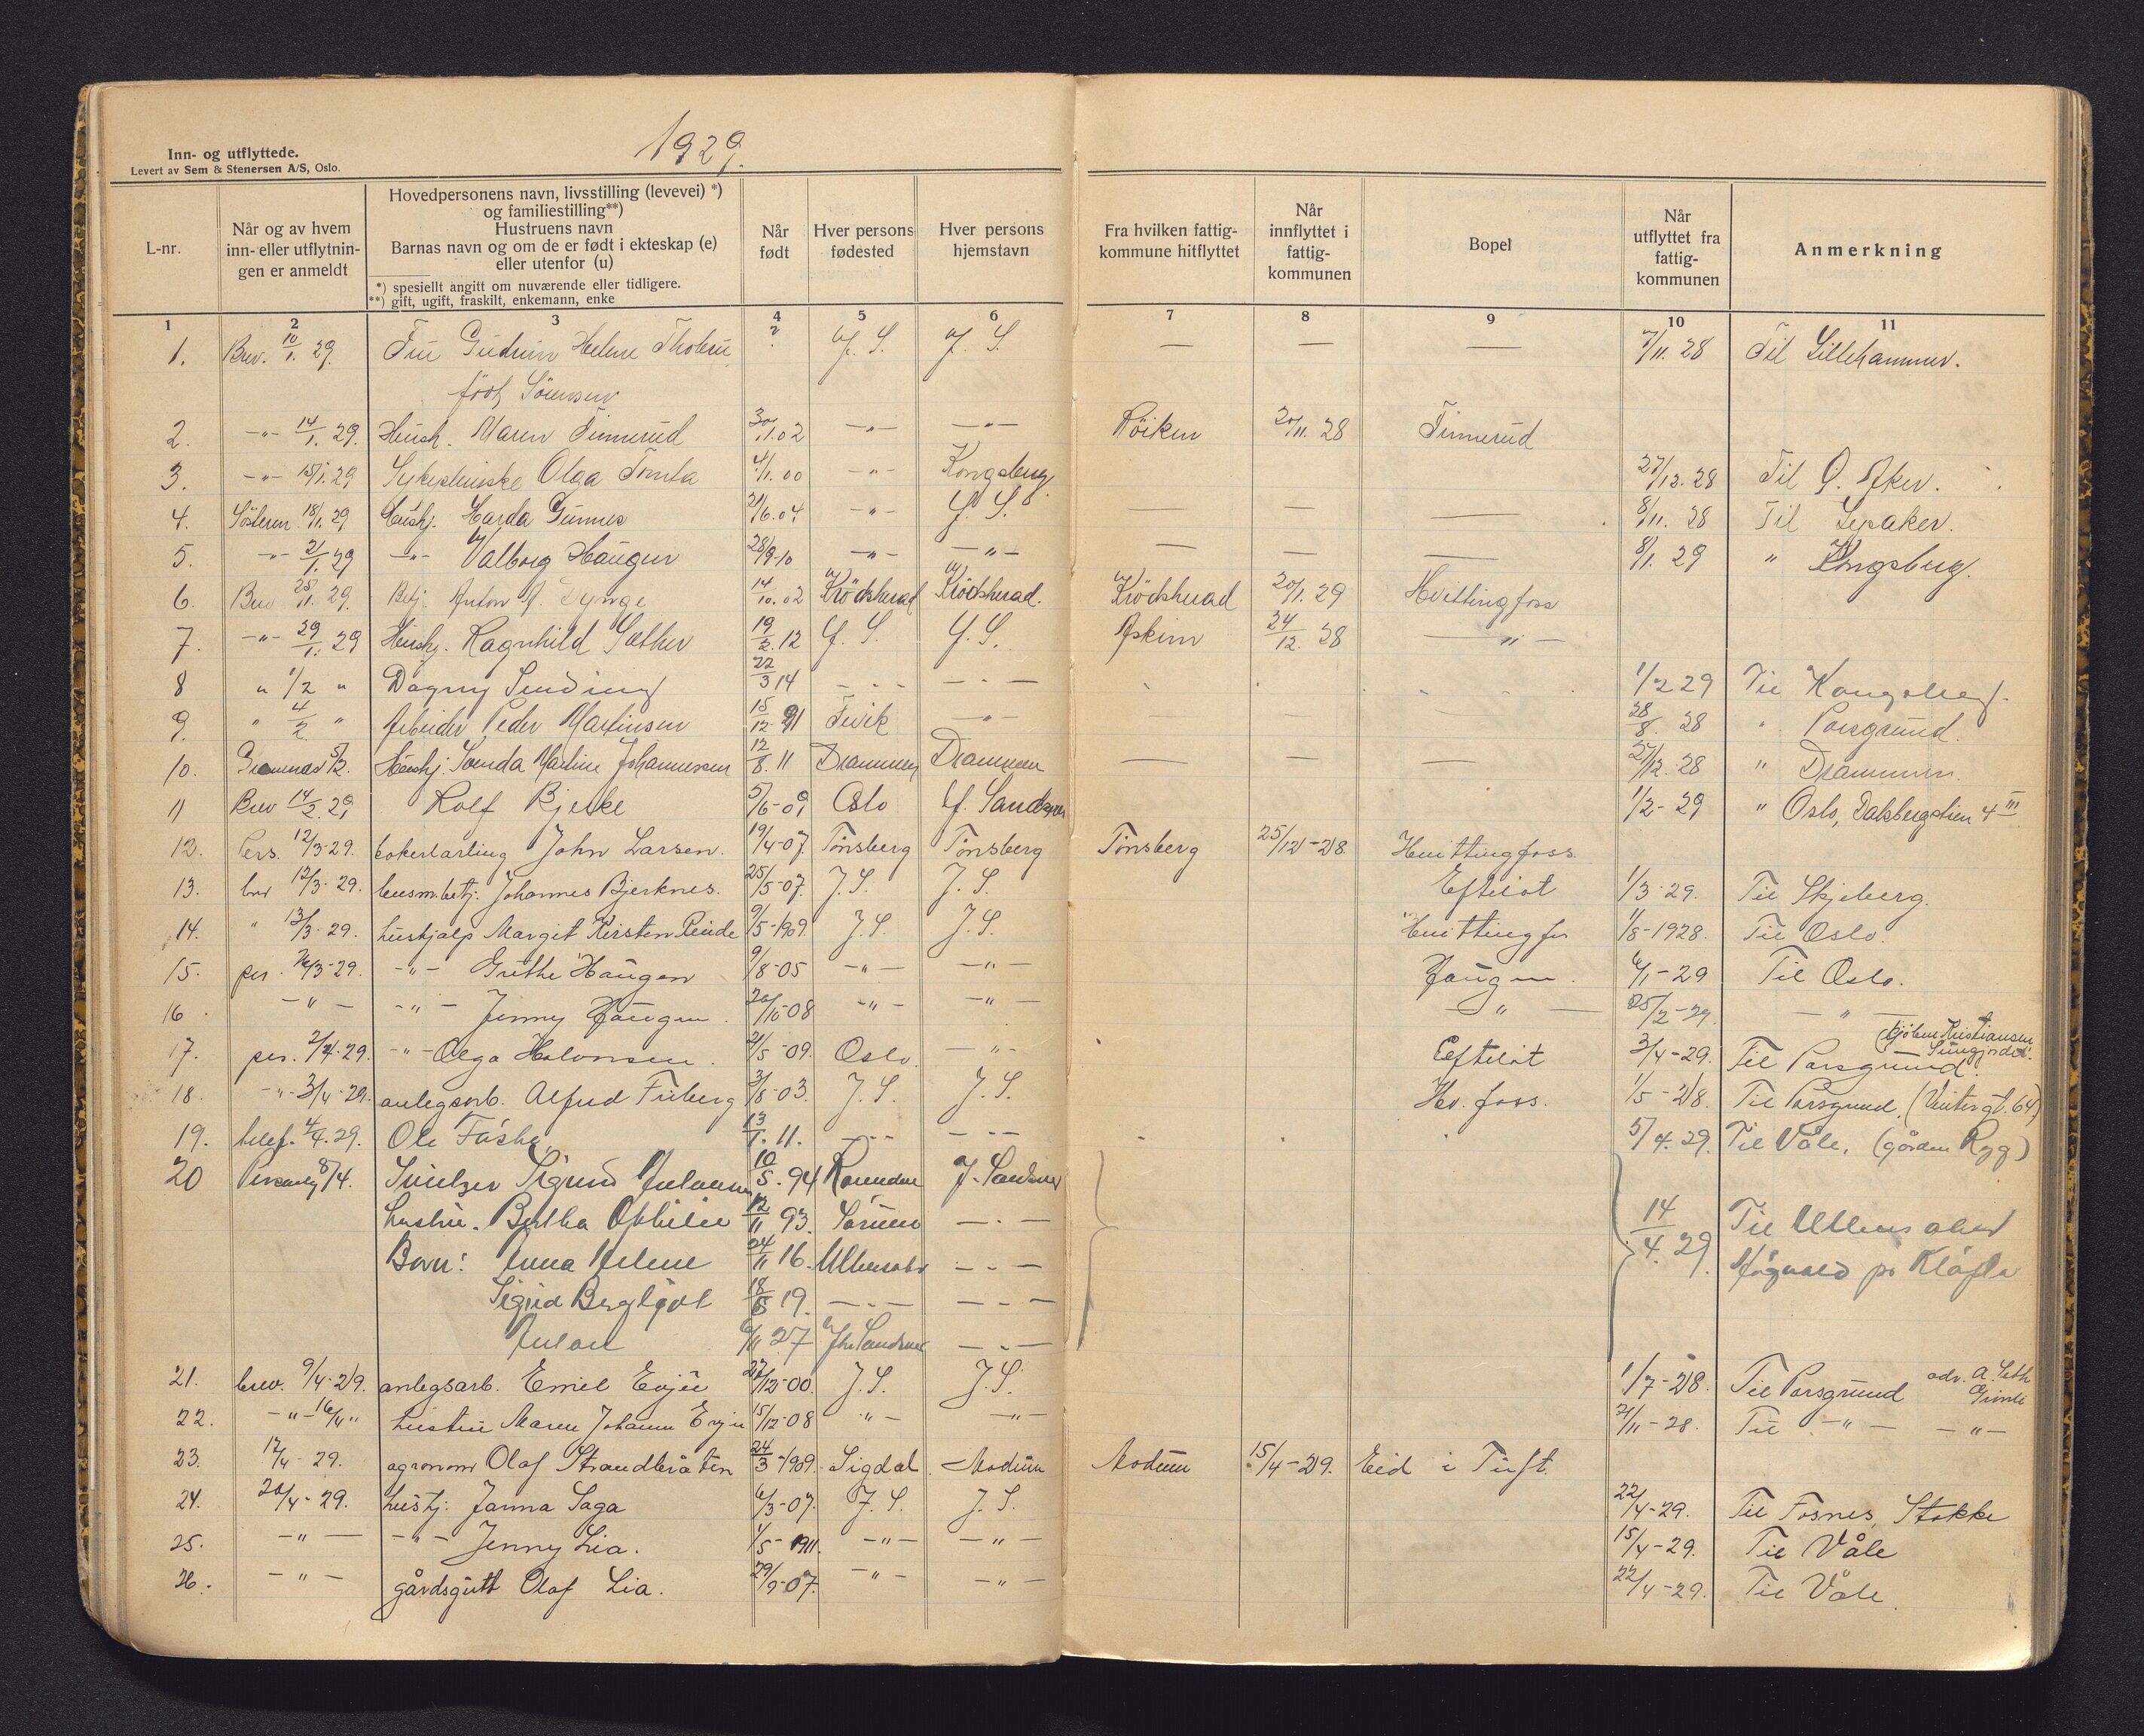 1929.
Inn- og utflyttede.
Levert av Sem & Stenersen A/S, Oslo.
L-nr.
Når og av hvem inn- eller utflytnin- gen er anmeldt
Hovedpersonens navn, livsstilling (levevei) *)
og familiestilling**)
Hustruens navn
Barnas navn og om de er født i ekteskap (e)
eller utenfor (u)
*) spesiellt angitt om nuværende eller tidligere.
**) gift, ugift, fraskilt, enkemann, enke
Når født
Hver persons fødested
Hver persons hjemstavn
Fra hvilken fattig- kommune hitflyttet
Når innflyttet i fattig- kommunen
Bopel
Når utflyttet fra fattig- kommunen
Anmerkning
1 2 3 4 5 6 7 8 9 10 11
1. Brev. 10/1. 29. Fru Gudrun Helene ? Y. S. Y. S. — — — 7/11. 28 Til Lillehammer.
født Sörensen
2. -"- 14/1. 29. Hush. Maren Finnerud 30/1.02 -"- -"- Röiken 20/11. 28 Finnerud
3. -"- 15/1. 29 Sykepleierske Olga Tomta 4/1.00 -"- Kongsberg 27/12. 28 Til Ö. Aker.
4. Sösteren 18/1. 29. Hushj. Harda Gunnes 21/6.04 -"- Y. S. — — 8/11. 28 Til Lysaker.
5. -"- 21/1. 29 -"- Valborg Haugen 28/9-10 -"- -"- — — — 8/1. 29 " Kongsberg.
6. Brev 25/11. 29. Betj. Anton A. Dynge 14/10.02 Krödsherad Krödsherad. Krödsherad 20/1. 29 Hvittingfoss
7. -"- 29/1. 29 Hushj. Ragnhild Sæther 19/2.12 Y. S. Y. S. Askim 24/12. 28 -"-
8 " 1/2 " Dagny 22/3 14 - - - - - - 1/2 29 Til Kongsberg.
9. " 4/2 " Arbeider Peder Martinsen 15/12 91 -"- — — 28/8. 28 " Porsgrund.
10. 5/2. Hushj. Martine Johannessen 12/8. 11 Drammen Drammen — — — 27/12. 28 " Drammen.
11 Brev 14/2. 29 Rolf Bjerke 5/6-09 Oslo Y. Sandsver 1/2- 29 " Oslo, Dalsbergstien 4 III
12. Pers. 12/3-29. kokerlærling John Larsen. 19/4-07. Tönsberg Tönsberg Tönsberg 25/12-28. Hvittingfoss.
13. brev 12/3-29. Johannes Bjerknes. 25/5-07. J. S. J. S. Efteløt 1/3-29. Til Skjeberg.
14. " 13/3-29. hushjælp Margit Kirsten 9/5-1909 J. S. J. S. Hvittingfos 1/8-1928. Til Oslo.
15. per. /3-29. -"- Grethe Haugen 9/8-05 -"- -"- Haugen. 6/1-29 Til Oslo.
16. -"- -"- Jenny Haugen. 20/10-08 -"- -"- -"- 25/2-29. -"-
17. per. 2/4.29. -"- Olga Halvorsen. 21/5-09. Oslo -"- Efteløt 3/4-29. Til Porsgrund. Kristiansen
18. -"- 3/4-29. anlegsarb. Alfred Friberg 3/8-03. J. S. J. S. Hv. foss. 1/5-28. Til Porsgrund. (Vintergt. 64)
19. telef. 4/4.29. Ole 13/1. 11. - - - - 5/4.29. Til Våle, (gården Ryg)
20 Personlig 8/4. Sigurd 10/5. 94 Y. Sandsver
hustru. Bertha Othilie 12/11 93. Sörum - - - 14/4 29. Til Ullensaker
Barn: Anna Helene 24/11 16. Ullensaker - - - på Kløfta
Sigrid Bergljot 18/8 19. - - - - - -
6/11 27 Ytre Sandsver - - -
21. brev. 9/4-29. anlegsarb. Emil Evju 27/12-00. J. S. J. S. 1/7-28. Til Porsgrund adr. A. Grimli
22. -"- 16/4 " hustru Maren Johanne Evju 15/12-08 -"- -"- 21/11-28. Til -"- -"-
23. 17/4-29. agronom Olaf Strandbråten 24/3-1909. Sigdal Modum Modum 15/4-29. Eid i Tuft.
24. 20/4-29. hushj. Janna Saga 6/3-07. J. S. J. S. 22/4-29. Til Fosnes, Stokke
25. -"- -"- Jenny Lia. 1/5-1911. -"- -"- 15/4-29. Til Våle
26. -"- gårdsgutt Olaf Lia. 29/9-07. -"- -"- 22/4-29. Til Våle.